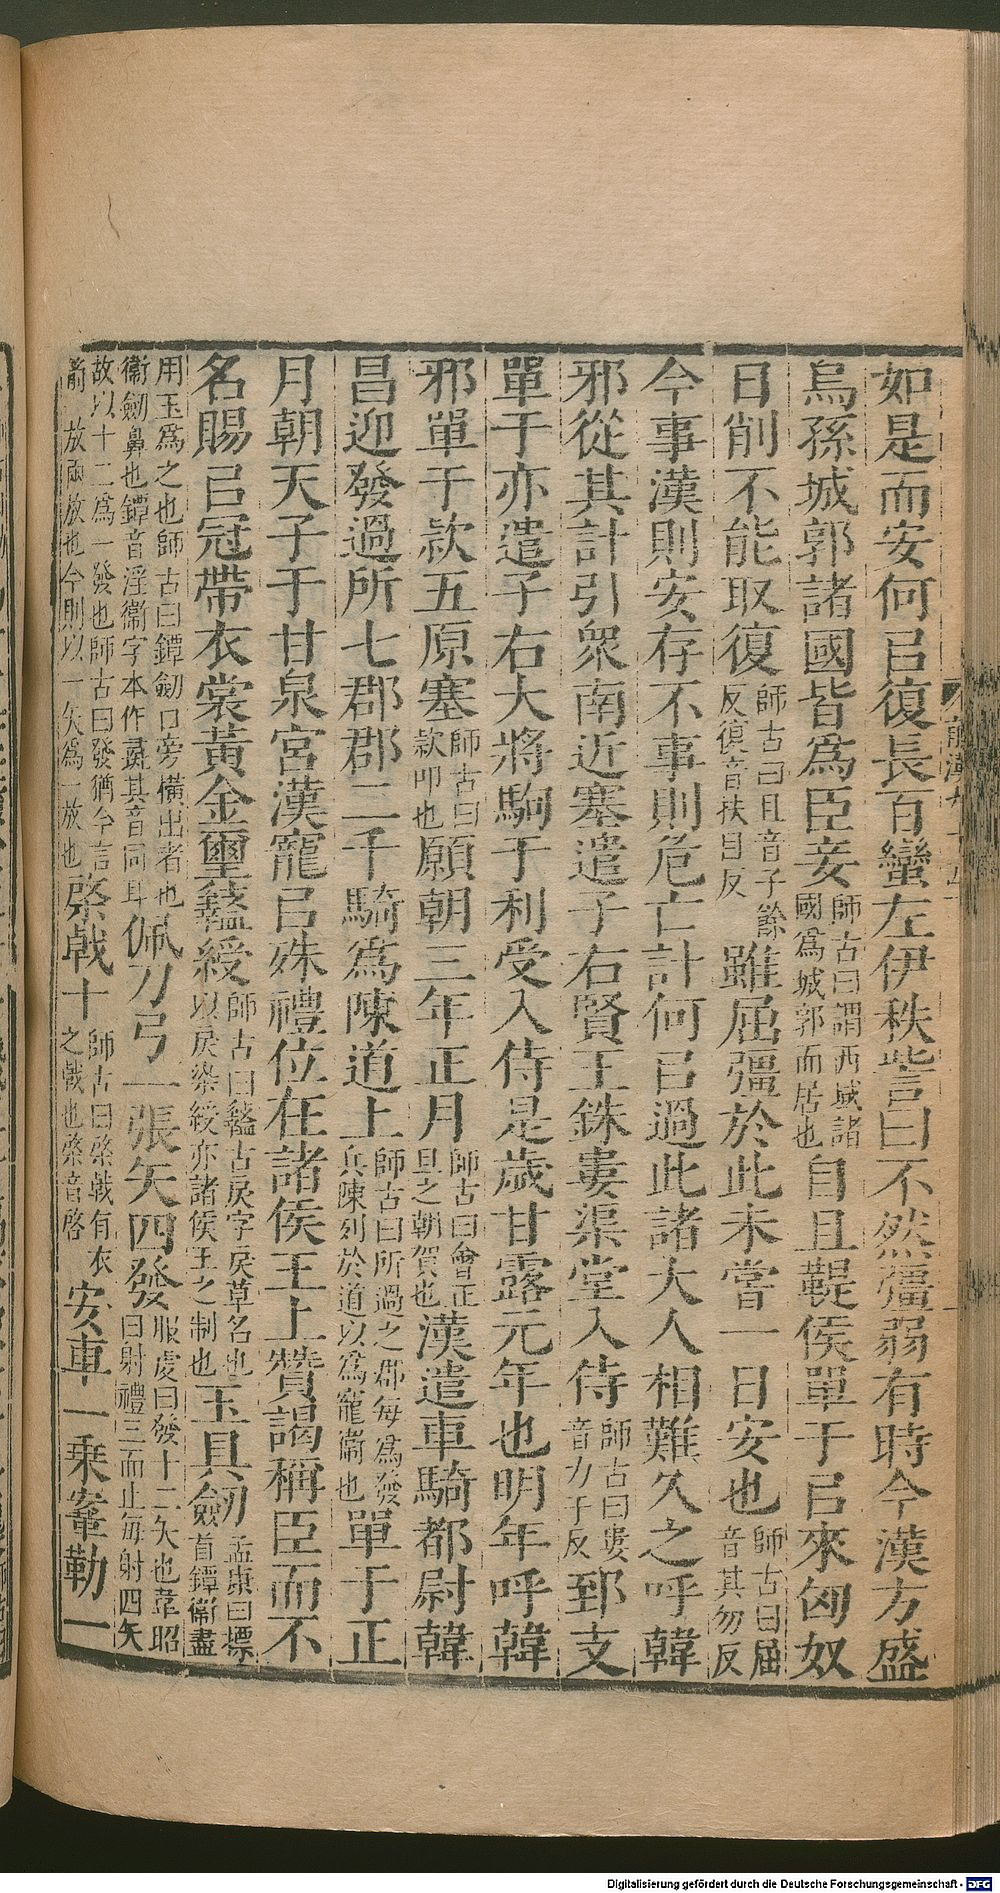 如是而安何㠯復長百蠻左伊秩訾曰不然彊弱有時今漢方盛
烏孫城郭諸國皆爲臣妾師古曰謂西域諸國爲城郭而居也自且鞮侯單于㠯來匈奴
日削不能取復師古曰且音子餘反復音扶目反雖屈彊於此未嘗一日安也師古曰屈音其勿反
今事漢則安存不事則危亡計何㠯過此諸大人相難久之呼韓
邪從其計引衆南近塞遣子右賢王銖婁渠堂入侍師古曰婁音力于反郅支
單于亦遣子右大將駒于利受入侍是歲甘露元年也明年呼韓
邪單于款五原塞師古曰款叩也願朝三年正月師古曰會正旦之朝賀也漢遣車騎都尉韓
昌迎發過所七郡郡二千騎爲陳道上師古曰所過之郡每爲發兵陳列於道以爲寵衞也單于正
月朝天子于甘泉宮漢寵㠯殊禮位在諸侯王上贊謁稱臣而不
名賜㠯冠帶衣裳黃金璽盭綬師古曰盭古戾字戾草名也以戾染綬亦諸侯王之制也玉具劒孟康曰摽首鐔衞盡
用玉爲之也師古曰鐔劒口旁橫出者也衞劒鼻也鐔音淫衞字本作彘其音同耳佩刀弓一張矢四發服虔曰發十二矢也韋昭曰射禮三而止每射四矢
故以十二爲一發也師古曰發猶今言箭一放兩放也今則以一矢爲一放也棨戟十師古曰棨戟有衣之戟也棨音啓安車一乘鞌勒一
Digitalisierung gefördert durch die Deutsche Forschungsgemeinschaft - DFG